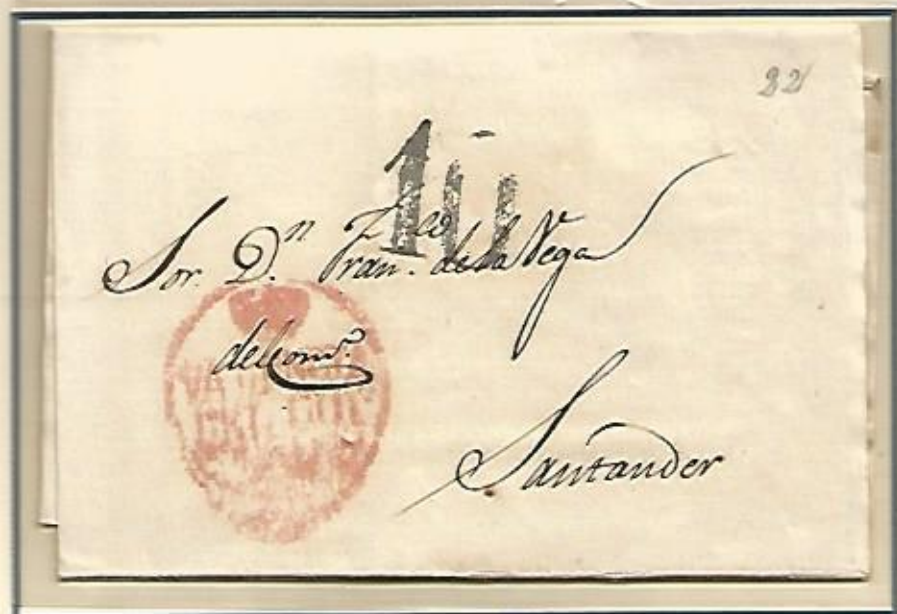 22
10
Sor. Dn. Franco. de la Vega
del Como.
Santander